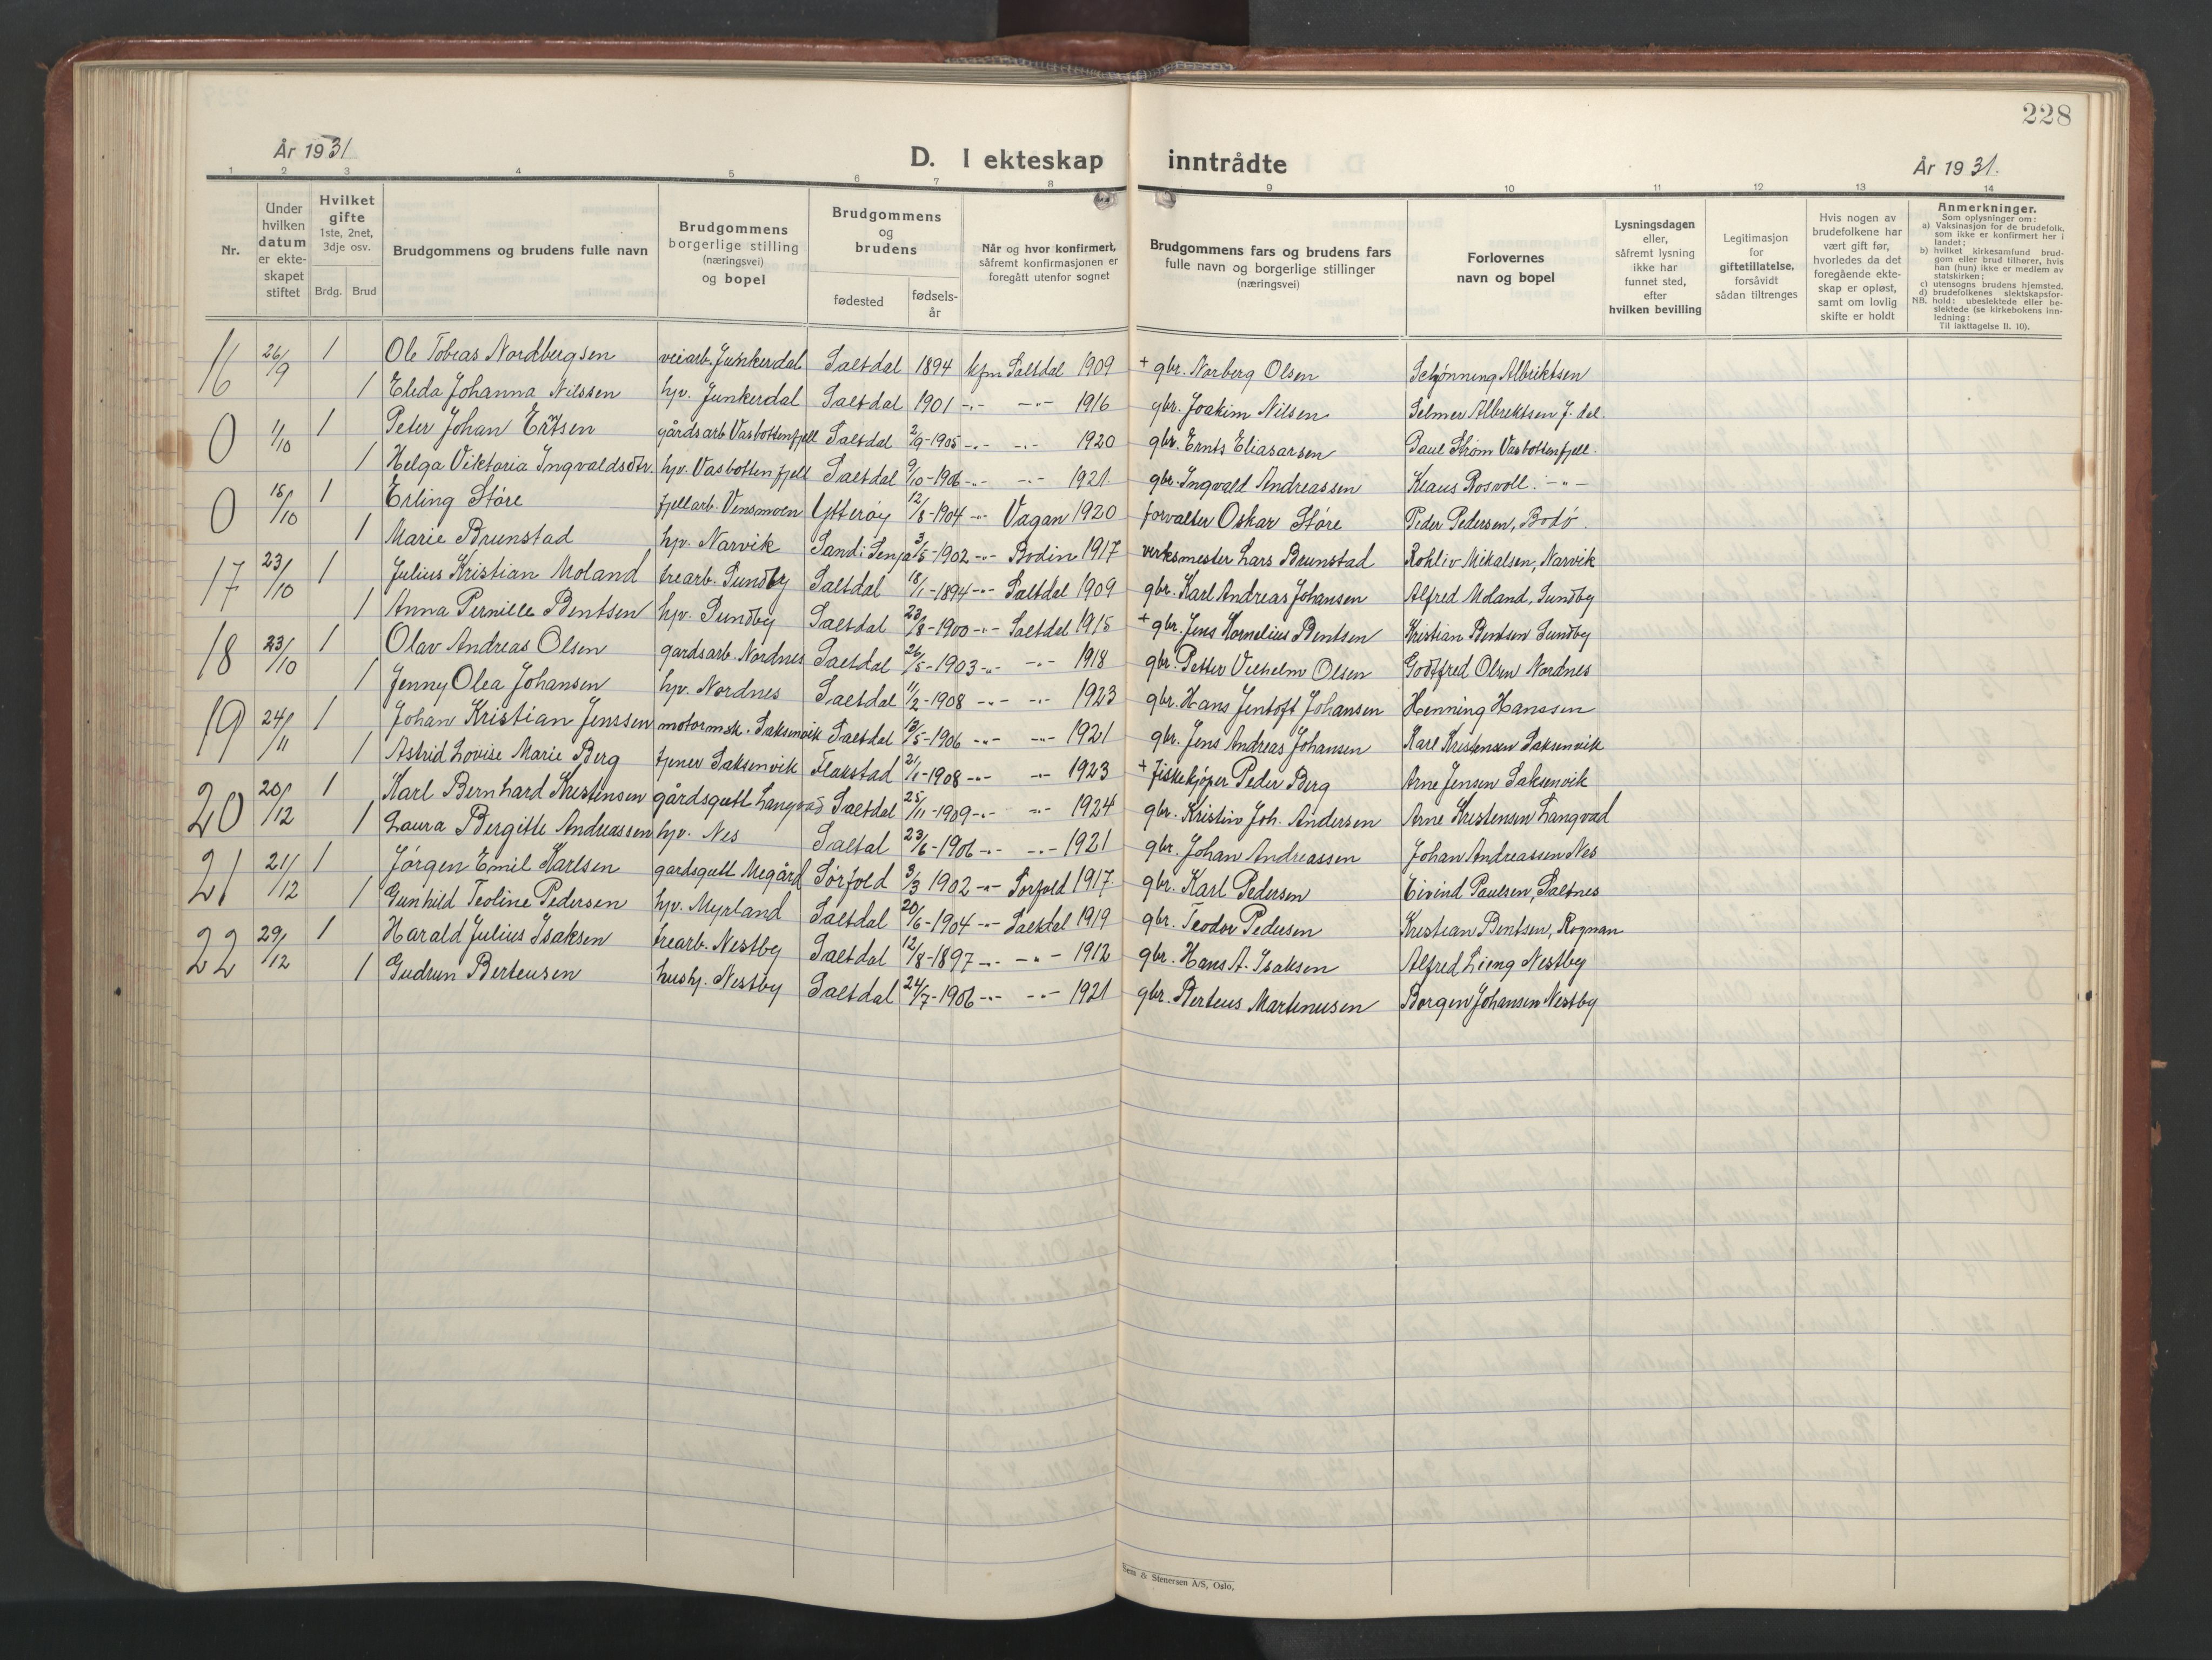 228
År 1931
D. I ekteskap inntrådte
År 1931.
1 2 3 4 5 6 7 8 9 10 11 12 13 14
Nr.
Under hvilken datum er ekte-skapet stiftet
Hvilket gifte 1ste, 2net, 3dje osv.
Brdg. Brud
Brudgommens og brudens fulle navn
Brudgommens borgerlige stilling (næringsvei) og bopel
Brudgommens og brudens
fødested
fødsels-år
Når og hvor konfirmert, såfremt konfirmasjonen er foregått utenfor sognet
Brudgommens fars og brudens fars fulle navn og borgerlige stillinger (næringsvei)
Forlovernes navn og bopel
Lysningsdagen eller, såfremt lysning ikke har funnet sted, efter hvilken bevilling
Legitimasjon for giftetillatelse, forsåvidt sådan tiltrenges
Hvis nogen av brudefolkene har vært gift før, hvorledes da det foregående ekte-skap er opløst, samt om lovlig skifte er holdt
Anmerkninger.
Som oplysninger om:
a) Vaksinasjon for de brudefolk, som ikke er konfirmert her i landet;
b) hvilket kirkesamfund brud-gom eller brud tilhører, hvis han (hun) ikke er medlem av statskirken;
c) utensogns brudens hjemsted.
d) brudefolkenes slektskapsfor-hold: ubeslektede eller be-slektede (se kirkebokens inn-ledning:
NB.
Til iakttagelse II. 10).
16 26/9 1 Ole Tobias Nordbergsen veiarb. Junkerdal Saltdal 1894 kfm Saltdal 1909 + gbr. Norberg Olsen Schjønning Albriktsen
1 Elida Johanna Nilssen hjv. Junkerdal Saltdal 1901 -"- -"- 1916 gbr. Joakim Nilsen Selmer Albriktsen J. dal
0 1/10 1 Peter Johan Ertsen gårdsarb Vasbottenfjell Saltdal 2/9-1905 -"- -"- 1920 gbr. Ernts Eliasarsen Paul Strøm Vasbottenfjell.
1 Helga Viktoria Ingvaldsdtr. hjv. Vasbottenfjell Saltdal 9/10-1906 -"- -"- 1921 gbr. Ingvald Andreassen Klaus Rosvoll. -"-
0 18/10 1 Erling Støre fjellarb. Vensmoen Ytterøy 12/8-1904 -"- Vagan 1920 forvalter Oskar Støre Peder Pedersen, Bodø.
1 Marie Brunstad hjv. Narvik Sand i Senja 3/5-1902 -"- Bodin 1917 verksmester Lars Brunstad Rohliv Mikalsen, Narvik
17 23/10 1 Julius Kristian Moland trearb. Sundby Saltdal 18/1-1894 -"- Saltdal 1909 gbr. Karl Andreas Johansen Alfred Moland, Sundby
1 Anna Pernille Bentsen hjv. Sundby Saltdal 23/8-1900 -"- Saltdal 1915 + gbr. Jens Kornelius Bentsen Kristian Bentsen Sundby
18 23/10 1 Olav Andreas Olsen gardsarb. Nordnes Saltdal 26/5-1903 -"- -"- 1918 gbr. Petter Vilhelm Olsen Godtfred Olsen Nordnes
1 Jenny Olea Johansen hjv. Nordnes Saltdal 11/2-1908 -"- -"- 1923 gbr. Hans Jentoft Johansen Henning Hanssen
19 24/11 1 Johan Kristian Jenssen motormsk. Saksenvik Saltdal 13/5-1906 -"- -"- 1921 gbr. Jens Andreas Johansen Karl Kristensen Saksenvik
1 Astrid Lovise Marie Berg tjener Saksenvik Flakstad 21/1-1908 -"- -"- 1923 + fiskekjøper Peder Berg Arne Jensen Saksenvik
20 20/12 1 Karl Bernhard Kristensen gårdsgutt Langvad Saltdal 25/11-1909 -"- -"- 1924 gbr. Kristin Joh. Andersen Arne Kristensen Langvad
1 Laura Bergitte Andreassen hjv. Nes Saltal 23/6-1906 -"- -"- 1921 gbr. Johan Andreassen Johan Andreassen Nes
21 21/12 1 Jørgen Emil Karlsen gardsgutt Megård Sørfold 3/3 1902 -"- Sørfold 1917 gbr. Karl Pedersen Eivind Paulsen, Saltnes
1 Gunhild Teoline Pedersen hjv. Myrland Saltdal 20/6-1904 -"- Saltdal 1919 gbr. Teodor Pedersen Kristian Bentsen, Rognan
22 29/12 1 Harald Julius Isaksen trearb. Nestby Saltdal 12/8-1897 -"- -"- 1912 gbr. Hans A. Isaksen Alfred Lieng Nestby
1 Gudrun Berteusen hushj. Nestby Saltdal 24/7-1906 -"- -"- 1921 gbr. Berteus Martinusen Borgen Johansen Nestby
Sem & Stenersen A/S, Oslo.